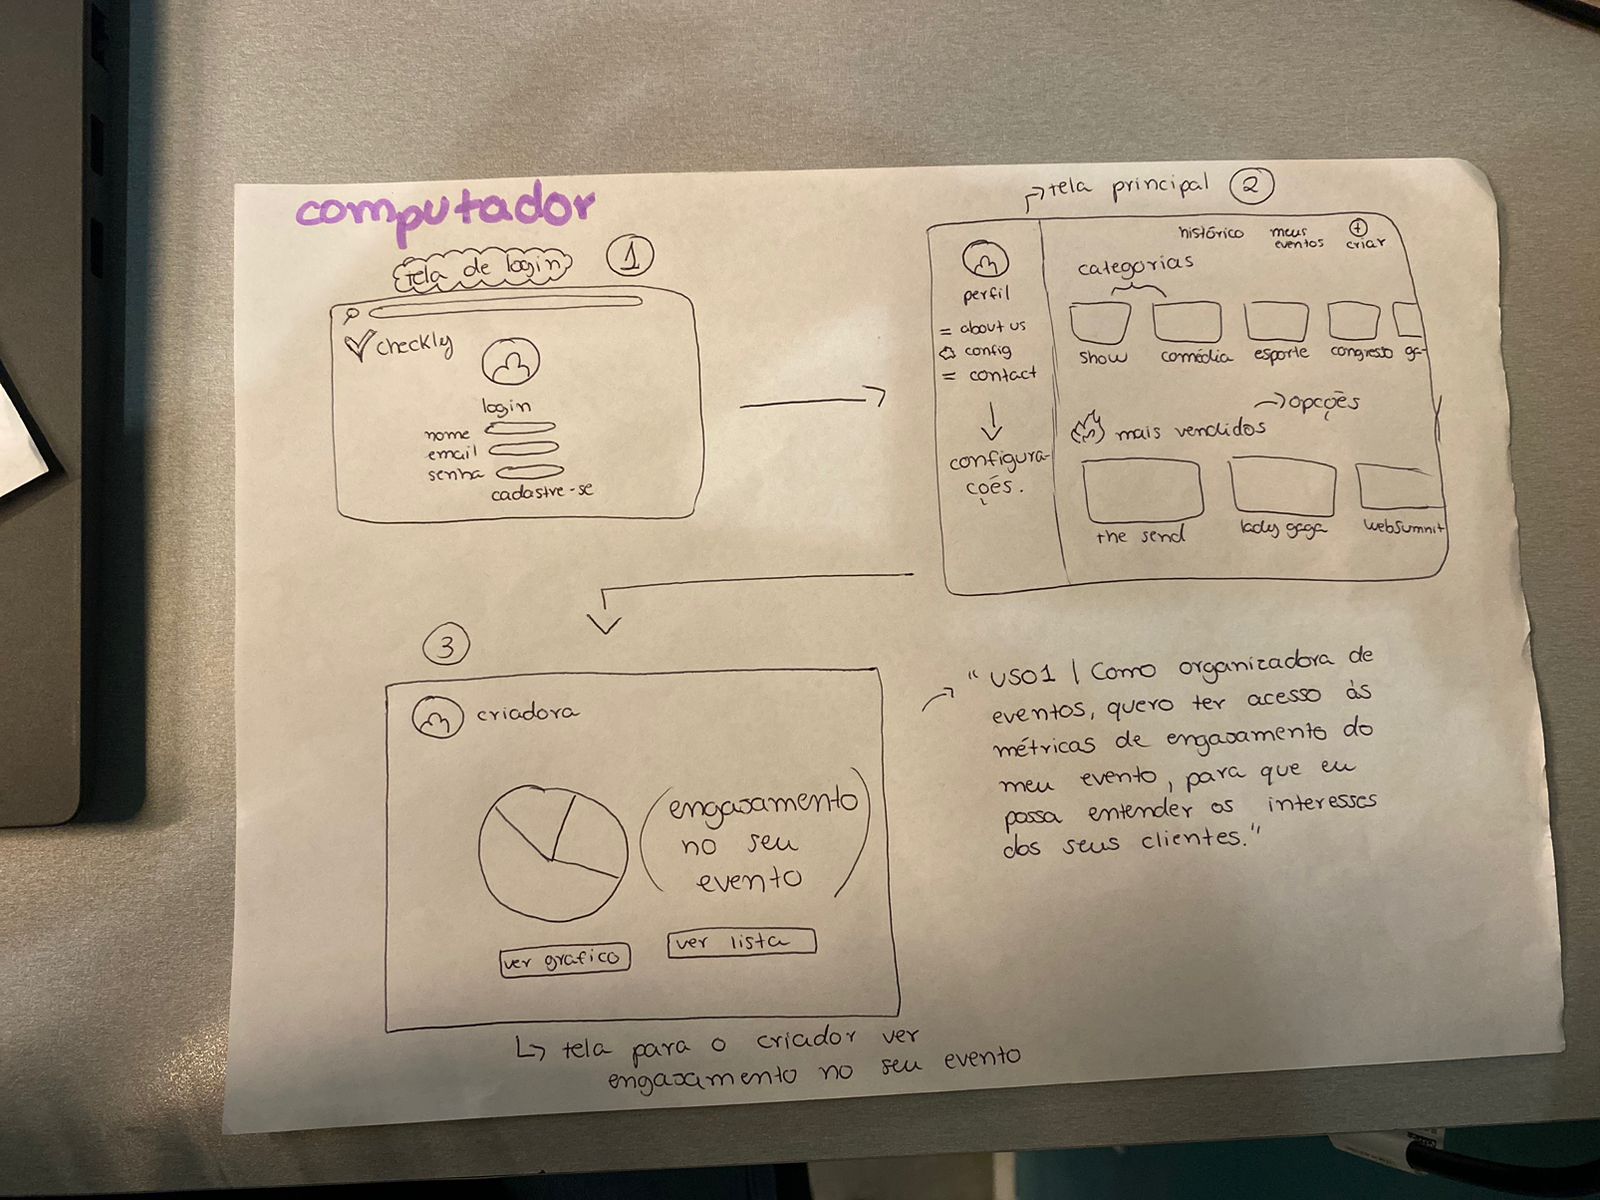 computador
tela de login
1
checkly
login
nome
email
senha
cadastre-se
tela principal 2
histórico
meus
eventos
criar
perfil
= about us
config
= contact
configura-
ções.
categorias
show
comédia
esporte
congresso
ga-
opções
mais vendidos
the send
lady gaga
websummit
3
criadora
(engajamento
no seu
evento)
ver grafico
ver lista
tela para o criador ver
engajamento no seu evento
"US01 | Como organizadora de
eventos, quero ter acesso às
métricas de engajamento do
meu evento, para que eu
possa entender os interesses
dos seus clientes."